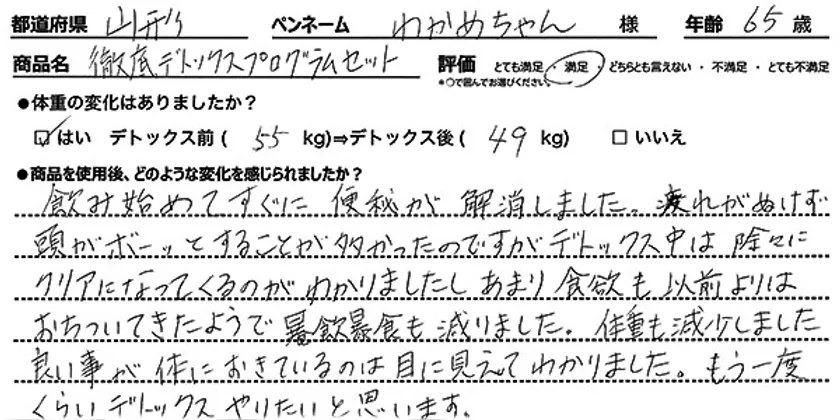 都道府県 山形 ペンネーム わかめちゃん 様 年齢 65 歳
商品名 徹底デトックスプログラムセット 評価 とても満足 ・ 満足 ・ どちらとも言えない ・ 不満足 ・ とても不満足
*○で囲んでお選びください。
●体重の変化はありましたか?
☑はい デトックス前 ( 55 kg)⇒デトックス後 ( 49 kg) □いいえ
●商品を使用後、どのような変化を感じられましたか?
飲み始めてすぐに 便秘が 解消しました。疲れがぬけず
頭がボーッとすることが多かったのですがデトックス中は 除々に
クリアになってくるのが わかりましたし あまり 食欲も 以前よりは
おちついてきたようで 暴飲暴食も 減りました。体重も減少しました
良い事が 体に おきているのは 目に見えて わかりました。もう一度
くらい デトックス やりたいと思います。